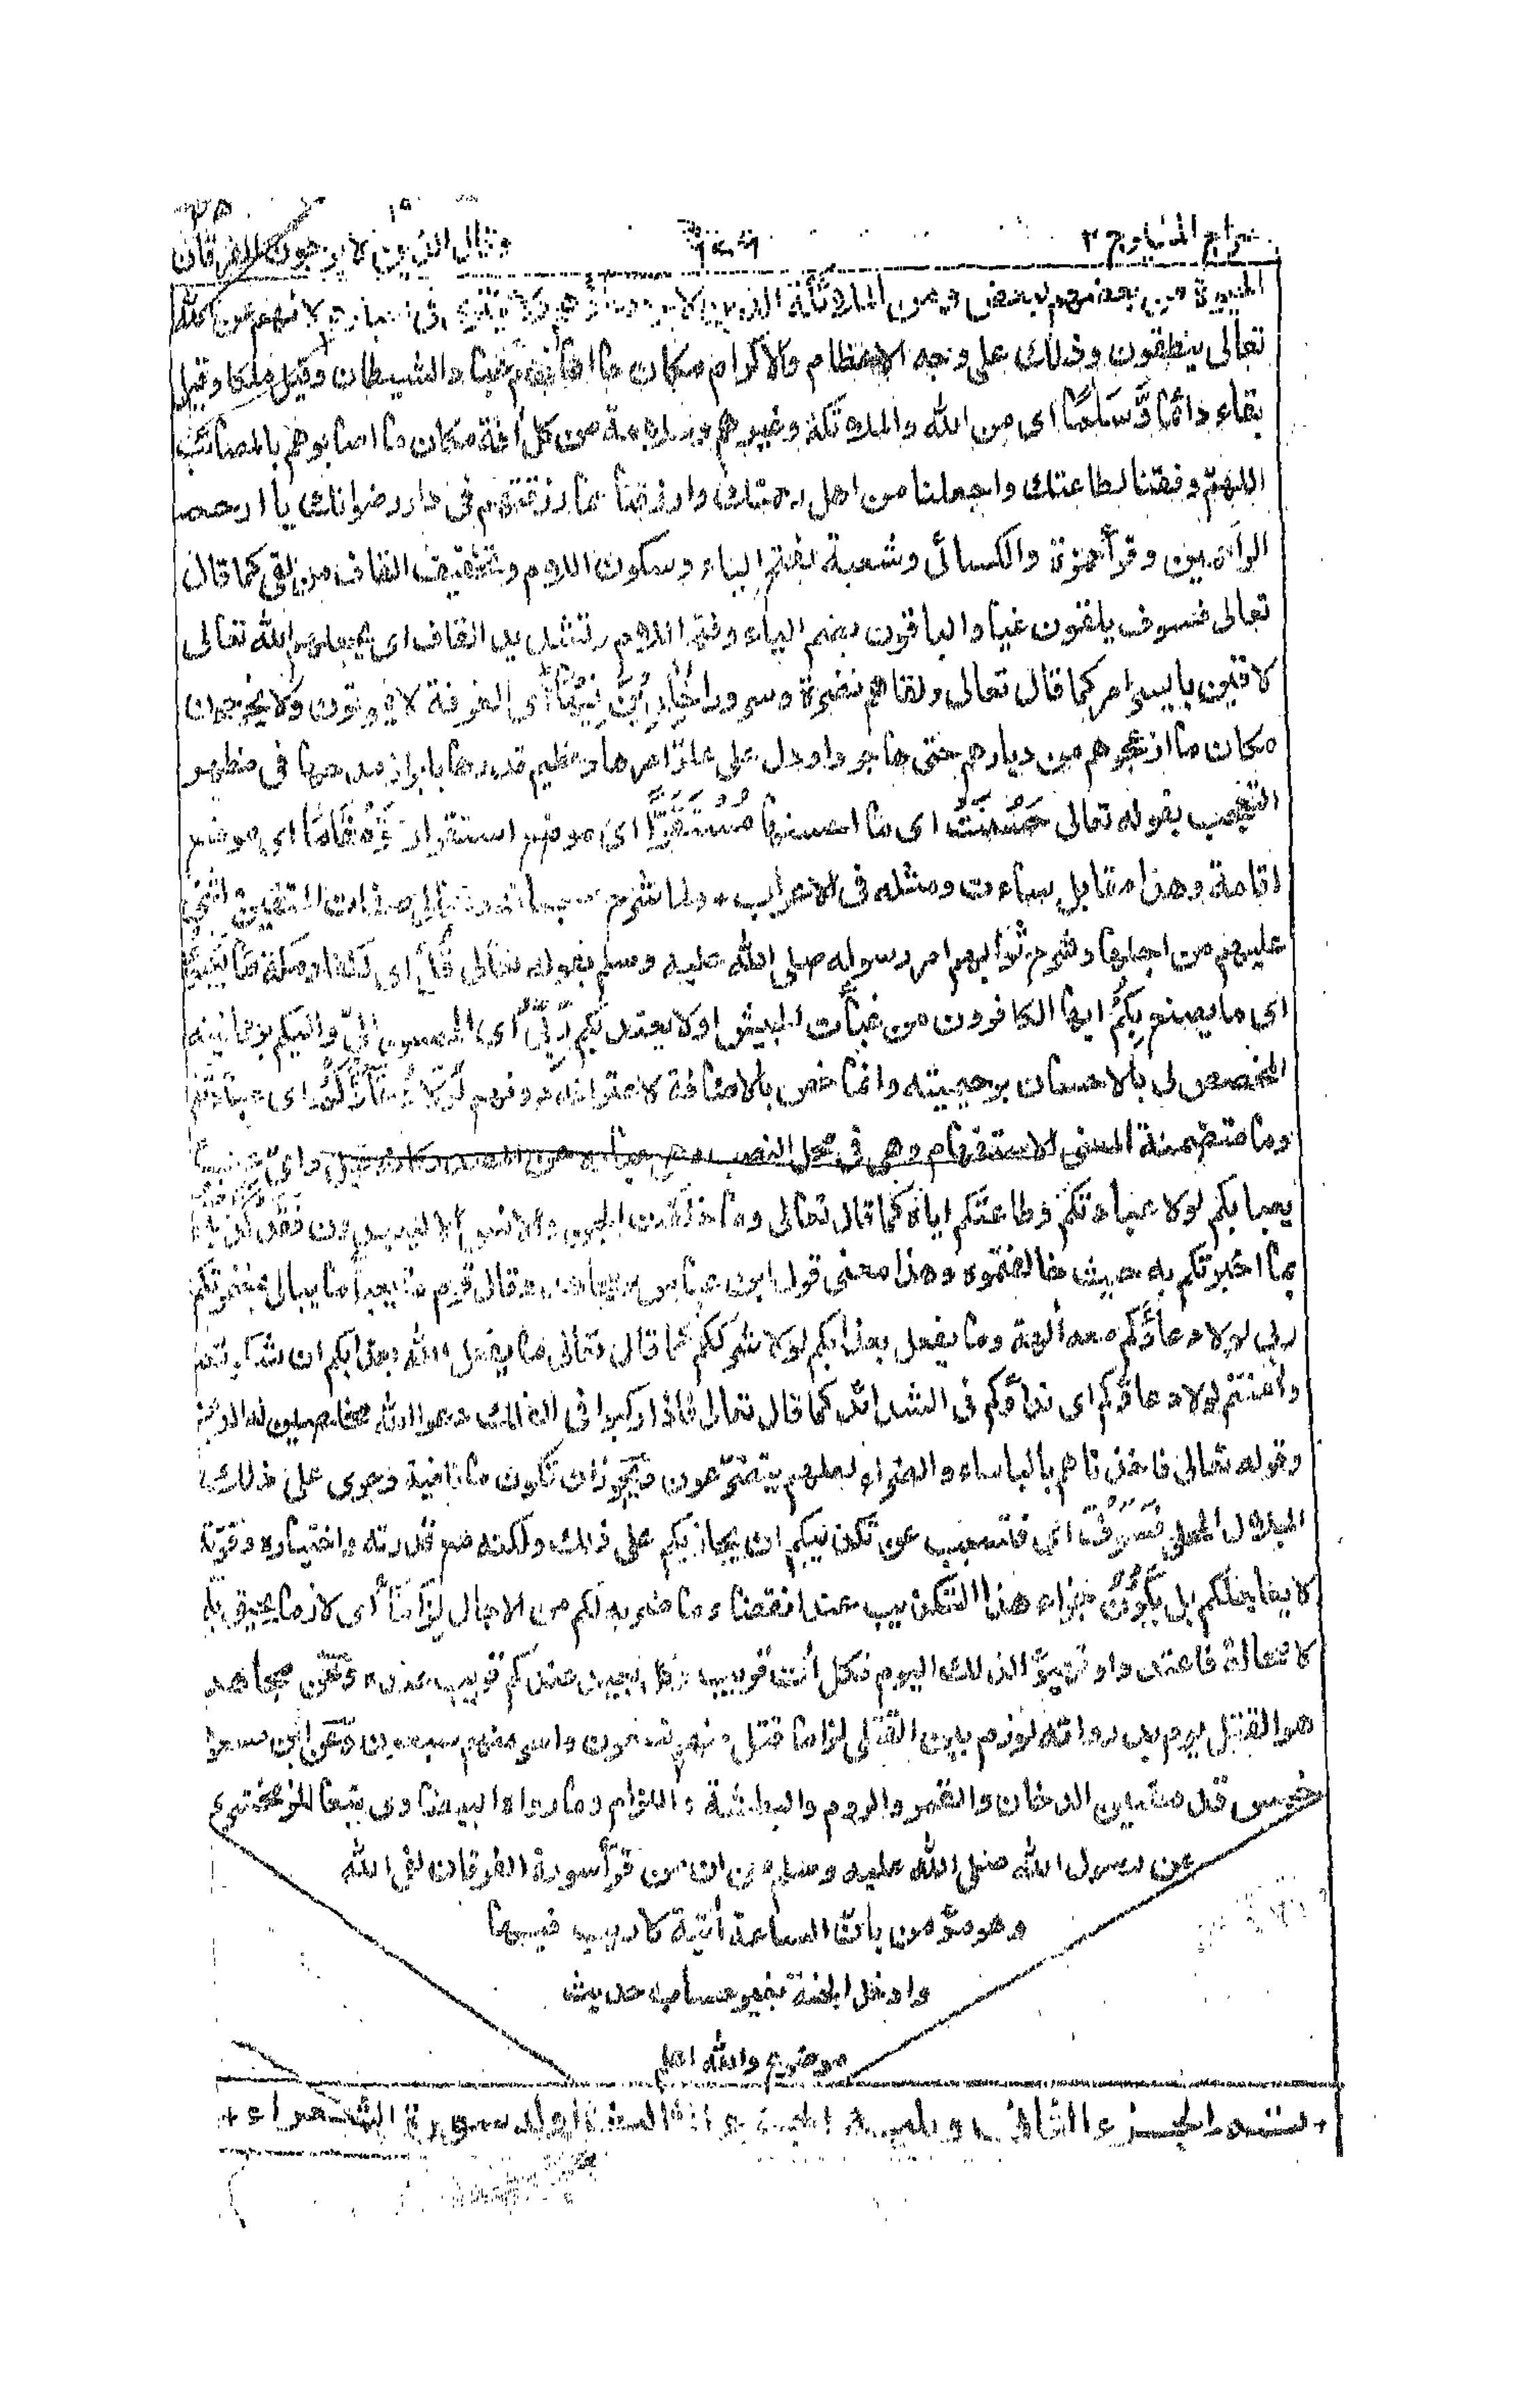 سراج المنير ج ٢ وقال الذين لا يرجون الفرقان
من بعضهم لبعض ومن الملائكة الذين لا لانهم عن الله
تعالى ينطقون وذلك على وجه الاعظام والاكرام مكان ما اهانهم عباد الشيطان وقيل ملكا وقيل
بقاء دائما وَّسَلٰمًا اى من الله والملائكة وغيرهم وسلامة من كل اٰفة مكان ما اصابوهم بالمصائب
اللهم وفقنا لطاعتك واجعلنا من اهل رحمتك وارزقنا مما رزقتهم فى دار رضوانك يا ارحم
الراحمين وقرأ حمزة والكسائى وشعبة بفتح الياء وسكون اللام وتخفيف القاف من لقى كما قال
تعالى فسوف يلقون غيا والباقون بضم الياء وفتح اللام وتشديد القاف اى يجعلهم الله تعالى
لاقين بايسر امر كما قال تعالى ولقاهم نضرة وسرورا خٰلِدِيْنَ فِيْهَا اى الغرفة لا يموتون ولا يخرجون
مكان ما ازعجوهم من ديارهم حتى هاجروا ودل على علو امرها وعظيم قدرها بابراز مدحها فى مظهر
التعجب بقوله تعالى حَسُنَتْ اى ما احسنها مُسْتَقَرًّا اى موضع استقرار وَّمُقَامًا اى موضع
اقامة وهذا مقابل ساءت ومثله فى الاعراب ولما شرح سبحانه وتعالى صفات المتقين واثنى
عليهم من اجلها وشرح ثوابهم امر رسوله صلى الله عليه وسلم بقوله تعالى قُلْ اى لكفار مكة مَا يَعْبَؤُا
اى ما يصنع بِكُمْ ايها الكافرون من عبأت الجيش اولا يعتد بكم رَبِّىْ اى المحسن الىّ واليكم برحمانيته
المخصص لى بالاحسان برحيميته وانما خص بالاضافة لاعترافه دونهم لَوْلَا دُعَآؤُكُمْ اى عبادتكم
وما متضمنة لمعنى الاستفهام وهى فى محل النصب وهى عبارة عن المصدر كانه قيل واىّ عبء
يعبا بكم لولا عبادتكم وطاعتكم اياه كما قال تعالى وما خلقت الجن والانس الا ليعبدون فَقَدْ كَذَّبْتُمْ
بما اخبرتكم به حيث خالفتموه وهذا معنى قول ابن عباس ومجاهد وقال قوم ما يعبأ ما يبالى بمغفرتكم
ربى لولا دعاؤكم معه اٰلهة وما يفعل بعذابكم لولا شرككم كما قال تعالى ما يفعل الله بعذابكم ان شكرتم
واٰمنتم لولا دعاؤكم اى نداؤكم فى الشدائد كما قال تعالى فاذا ركبوا فى الفلك دعوا الله مخلصين له الدين
وقوله تعالى فاخذناهم بالباساء والضراء لعلهم يتضرعون ويجوز ان تكون ما نافية وجرى على ذلك
الجلال المحلى فَسَوْفَ اى فتسبب عن تكذيبكم ان يجازيكم على ذلك ولكنه مع قدرته واختياره وقوته
لا يعاجلكم بل يَكُوْنُ جزاء هذا التكذيب عند انقضاء ما ضربه لكم من الاٰجال لِزَامًا اى لازما يحيق بكم
لا محالة فاعتدوا وتهيؤا لذلك اليوم فكل اٰت قريب وكل بعيد عندكم قريب عنده وعن مجاهد
هو القتل يوم بدر وانه لوزم بين القتلى لزاما قتل منهم سبعون واسر منهم سبعون وعن ابن مسعود
خمس قد مضين الدخان والقمر والروم والبطشة واللزام وما رواه البيضاوى تبعا للزمخشرى
عن رسول الله صلى الله عليه وسلم من ان من قرأ سورة الفرقان لقى الله
وهو مؤمن بان الساعة اٰتية لا ريب فيها
وادخل الجنة بغير حساب حديث
موضوع والله اعلم
تم الجزء الثانى ويليه الجزء الثالث اوله سورة الشعراء